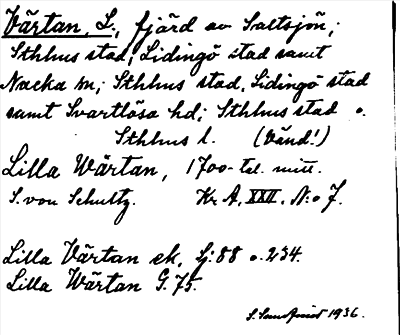 Värtan, L., fjärd av Saltsjön;
Sthlms stad, Lidingö stad samt
Nacka sn; Sthlms stad, Lidingö stad
samt Svartlösa hd; Sthlms stad o.
Sthlms l. (Vänd!)
Lilla Wärtan, 1700-tal. mitt.
S. von Schultz. Kr. A. XXII. N:o 7.
Lilla Värtan ek, Lj: 88 o. 234.
Lilla Wärtan G. 75.
1936.